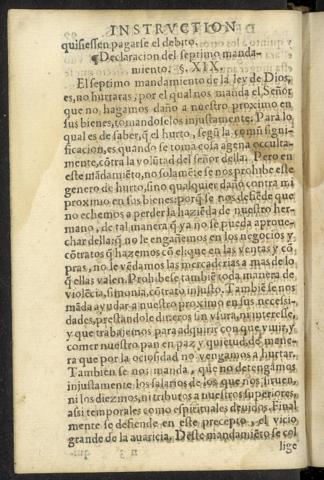 INSTRVCTION
quisiessen pagarse el debito.
¶Declaracion del septimo manda-
miento. §. XIX.
El septimo mandamiento de la ley de Dios,
es, no hurtaras, por el qual nos māda el Señor
que no hagamos daño a nuestro proximo en
sus bienes, tomandoselos injustamente. Para lo
qual es de saber, q̄ el hurto, segū la comū signi-
ficacion, es, quando se toma cosa agena occulta-
mente, cōtra la volūtad del señor della. Pero en
este mādamiēto, no solamēte se nos prohibe este
genero de hurto, sino qualquier daño contra mi
proximo en sus bienes: porq̄ se nos defiēde que
no echemos a perder la haziēda de nuestro her-
mano, de tal manera q̄ ya no se pueda aproue-
char della: q̄ no le engañemos en los negocios y
cōtratos q̄ hazemos cō el: que en las ventas y cō
pras, no le vēdamos las mercaderias a mas de lo
q̄ ellas valen. Prohibese tambiē toda manera de
violēcia, simonia, cōtrato injusto. Tambiē se nos
māda ayudar a nuestro proximo en sus necessi-
dades, prestandole dineros sin vsura, ni interesse,
y que trabajemos para adquirir con que viuir, y
comer nuestro pan en paz y quietud, de mane-
ra que por la ociosidad no vengamos a hurtar.
Tambien se nos manda, que no detengamos
injustamente los salarios de los que nos siruen,
ni los diezmos, ni tributos a nuestros superiores,
assi temporales como espirituales deuidos. Final
mente se defiende en este precepto, el vicio
grande de la auaricia. Deste mandamiēto se col
lige